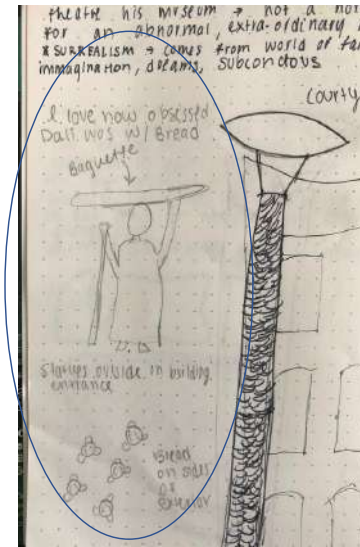 theatre his museum → not a nor
for an abnormal, extra-ordinary
* SURREALISM → comes from world of fan
immagination, dreams, subcondous
courty
I love how obsessed
Dali was w/ Bread
Baguette
Statues outside in building
entrance
Bread
on sides
of
exterior